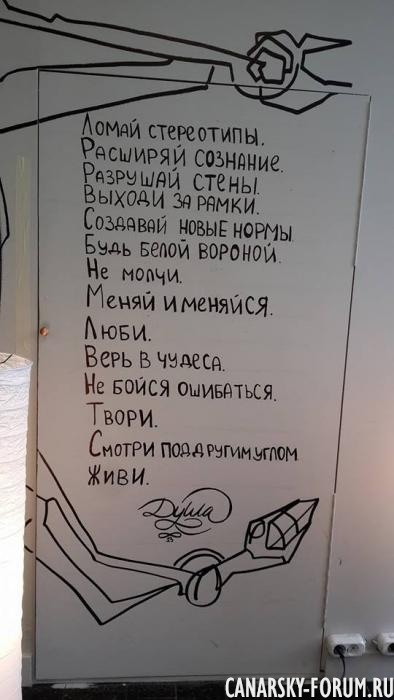 Ломай стереотипы.
Расширяй сознание.
Разрушай стены.
Выходи за рамки.
Создавай новые нормы.
Будь белой вороной.
Не молчи.
Меняй и меняйся.
Люби.
Верь в чудеса.
Не бойся ошибаться.
Твори.
Смотри под другим углом
Живи.
Душа
CANARSKY-FORUM.RU